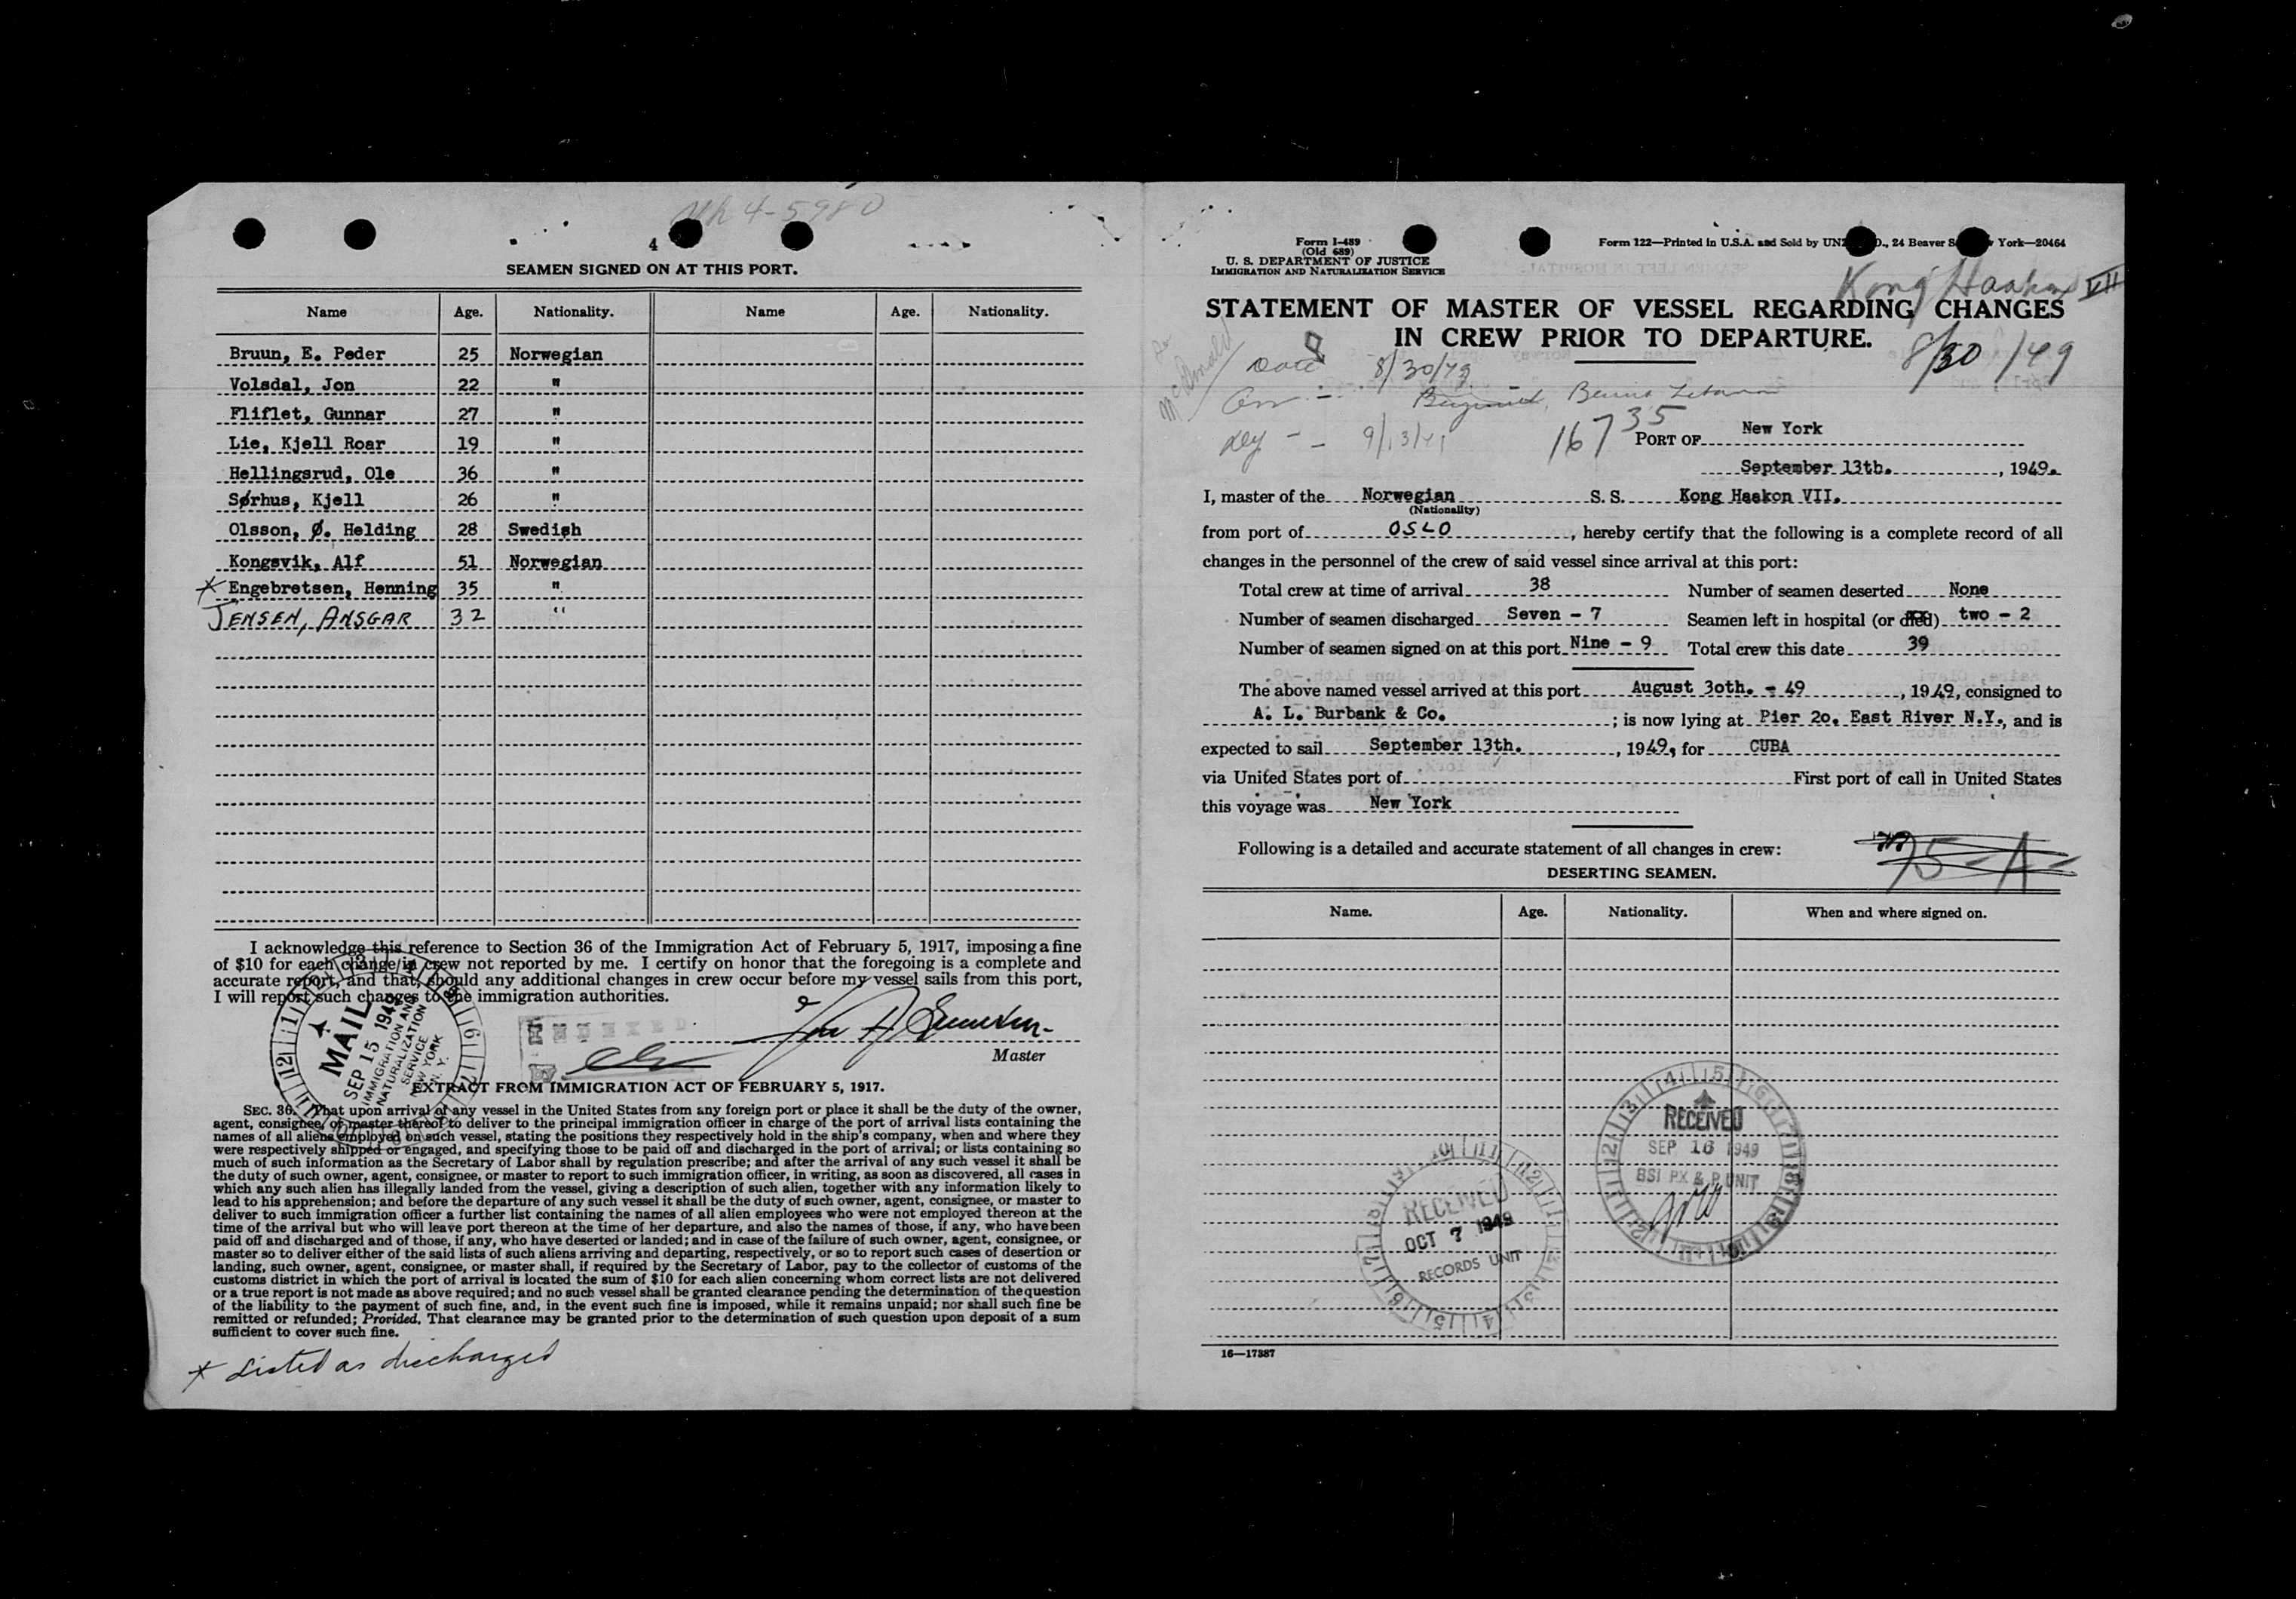 4-5980
4
SEAMEN SIGNED ON AT THIS PORT.
Name Age. Nationality. Name Age. Nationality.
Bruun, E. Peder 25 Norwegian
Volsdal, Jon 22 "
Fliflet, Gunnar 27 "
Lie, Kjell Roar 19 "
Hellingsrud, Ole 36 "
Sørhus, Kjell 26 "
Olsson, Ø. Helding 28 Swedish
Kongsvik, Alf 51 Norwegian
* Engebretsen, Henning 35 "
JENSEN, ANSGAR 32 "
I acknowledge this reference to Section 36 of the Immigration Act of February 5, 1917, imposing a fine
of $10 for each change in crew not reported by me. I certify on honor that the foregoing is a complete and
accurate report, and that, should any additional changes in crew occur before my vessel sails from this port,
I will report such changes to the immigration authorities.
MAIL
SEP 15 1949
IMMIGRATION AND
NATURALIZATION
SERVICE
NEW YORK
N. Y.
INDEXED
BY
Master
EXTRACT FROM IMMIGRATION ACT OF FEBRUARY 5, 1917.
SEC. 36. That upon arrival of any vessel in the United States from any foreign port or place it shall be the duty of the owner,
agent, consignee, or master thereof to deliver to the principal immigration officer in charge of the port of arrival lists containing the
names of all aliens employed on such vessel, stating the positions they respectively hold in the ship's company, when and where they
were respectively shipped or engaged, and specifying those to be paid off and discharged in the port of arrival; or lists containing so
much of such information as the Secretary of Labor shall by regulation prescribe; and after the arrival of any such vessel it shall be
the duty of such owner, agent, consignee, or master to report to such immigration officer, in writing, as soon as discovered, all cases in
which any such alien has illegally landed from the vessel, giving a description of such alien, together with any information likely to
lead to his apprehension; and before the departure of any such vessel it shall be the duty of such owner, agent, consignee, or master to
deliver to such immigration officer a further list containing the names of all alien employees who were not employed thereon at the
time of the arrival but who will leave port thereon at the time of her departure, and also the names of those, if any, who have been
paid off and discharged and of those, if any, who have deserted or landed; and in case of the failure of such owner, agent, consignee, or
master so to deliver either of the said lists of such aliens arriving and departing, respectively, or so to report such cases of desertion or
landing, such owner, agent, consignee, or master shall, if required by the Secretary of Labor, pay to the collector of customs of the
customs district in which the port of arrival is located the sum of $10 for each alien concerning whom correct lists are not delivered
or a true report is not made as above required; and no such vessel shall be granted clearance pending the determination of the question
of the liability to the payment of such fine, and, in the event such fine is imposed, while it remains unpaid; nor shall such fine be
remitted or refunded; Provided, That clearance may be granted prior to the determination of such question upon deposit of a sum
sufficient to cover such fine.
* Listed as discharged
Form I-489
(Old 689)
U. S. DEPARTMENT OF JUSTICE
IMMIGRATION AND NATURALIZATION SERVICE
Form 122—Printed in U.S.A. and Sold by UNZ D., 24 Beaver S York—20464
Kong Haakon VII
STATEMENT OF MASTER OF VESSEL REGARDING CHANGES
IN CREW PRIOR TO DEPARTURE.
8/30/49
McDonald
Date 8/30/49
Beirut Lebanon
9/13/49
16735
PORT OF New York
September 13th. , 1949.
I, master of the Norwegian S. S. Kong Haakon VII.
(Nationality)
from port of OSLO , hereby certify that the following is a complete record of all
changes in the personnel of the crew of said vessel since arrival at this port:
Total crew at time of arrival 38 Number of seamen deserted None
Number of seamen discharged Seven - 7 Seamen left in hospital (or died) two - 2
Number of seamen signed on at this port Nine - 9 Total crew this date 39
The above named vessel arrived at this port August 3oth. - 49 , 1949, consigned to
A. L. Burbank & Co. ; is now lying at Pier 2o. East River N.Y., and is
expected to sail September 13th. , 1949, for CUBA
via United States port of First port of call in United States
this voyage was New York
Following is a detailed and accurate statement of all changes in crew:
75-A-
DESERTING SEAMEN.
Name. Age. Nationality. When and where signed on.
RECEIVED
SEP 16 1949
BSI PX & P UNIT
RECEIVED
OCT 7 1949
RECORDS UNIT
16—17387